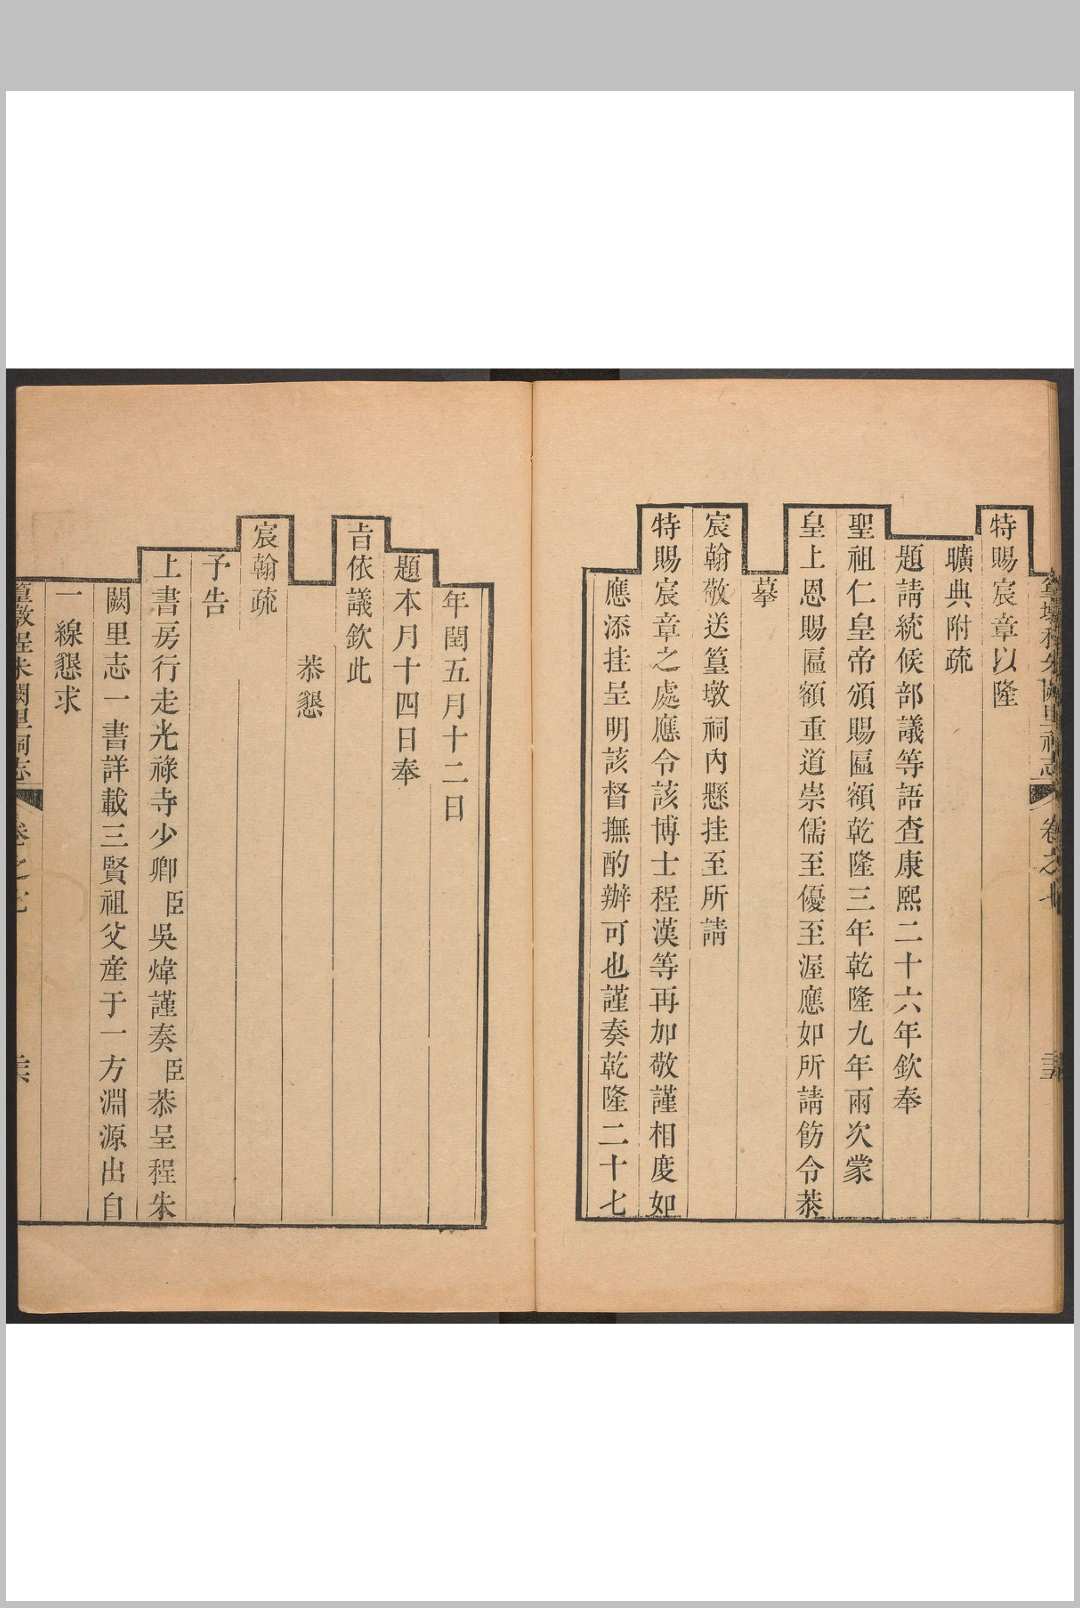 特賜宸章以隆
曠典附疏
題請統候部議等語查康熙二十六年欽奉
聖祖仁皇帝頒賜匾額乾隆三年乾隆九年兩次蒙
皇上恩賜匾額重道崇儒至優至渥應如所請飭令恭
摹
宸翰敬送篁墩祠內懸挂至所請
特賜宸章之處應令該博士程漢等再加敬謹相度如
應添挂呈明該督撫酌辦可也謹奏乾隆二十七
年閏五月十二日
題本月十四日奉
旨依議欽此
恭懇
宸翰疏
予告
上書房行走光祿寺少卿臣吳煒謹奏臣恭呈程朱
闕里志一書詳載三賢祖父產于一方淵源出自
一線懇求
篁墩程朱闕里祠志
卷之